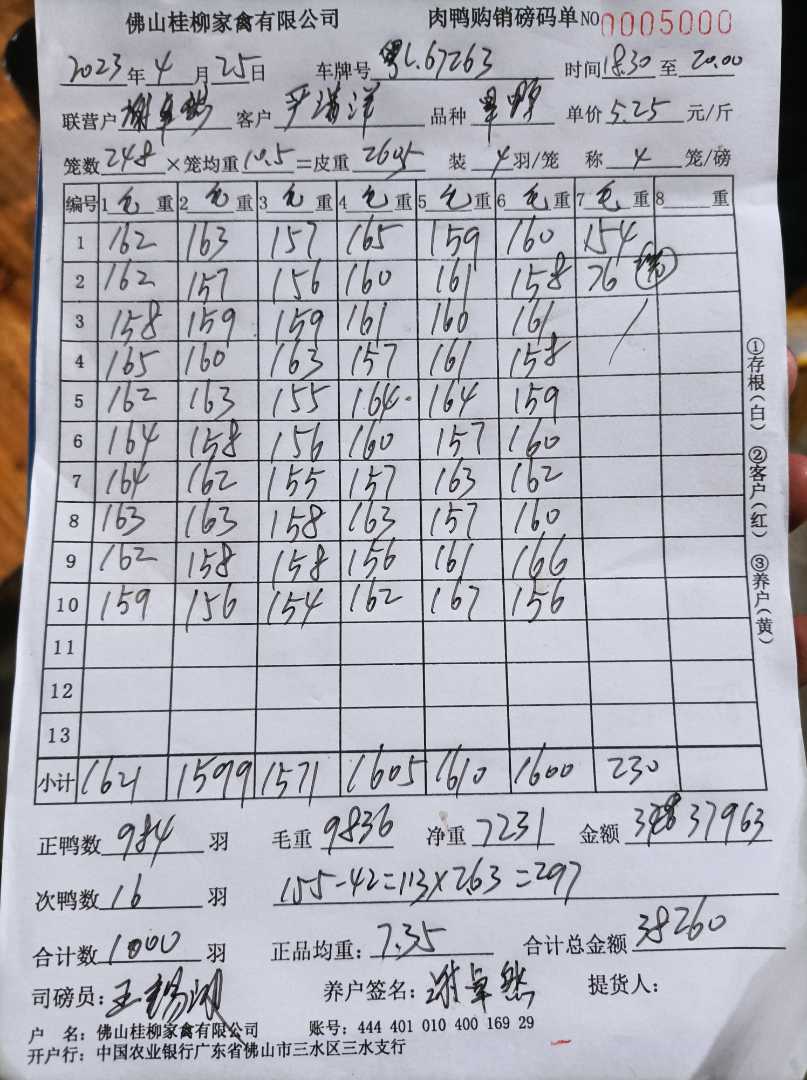 佛山桂柳家禽有限公司 肉鸭购销磅码单NO 0005000
2023年4月25日 车牌号 粤L.67263 时间18.30至20.00
联营户 谢卓然 客户 严满洋 品种 单价5.25元/斤
笼数248×笼均重10.5=皮重2605 装4羽/笼 称4笼/磅
编号 1毛重 2毛重 3毛重 4毛重 5毛重 6毛重 7毛重 8重
1 162 163 157 165 159 160 154
2 162 157 156 160 161 158 76
3 158 159 159 161 160 161 /
4 165 160 163 157 161 158
5 162 163 155 164 164 159
6 164 158 156 160 157 160
7 164 162 155 157 163 162
8 163 163 158 163 157 160
9 162 158 158 156 161 166
10 159 156 154 162 167 156
11
12
13
小计 1621 1599 1571 1605 1610 1600 230
正鸭数984羽 毛重9836 净重7231 金额 37963
次鸭数16羽 155-42=113×2.63=297
合计数1000羽 正品均重:7.35 合计总金额38260
司磅员: 养户签名:谢卓然 提货人:
户 名:佛山桂柳家禽有限公司 账号:444 401 010 400 169 29
开户行:中国农业银行广东省佛山市三水区三水支行
①存根(白) ②客户(红) ③养户(黄)